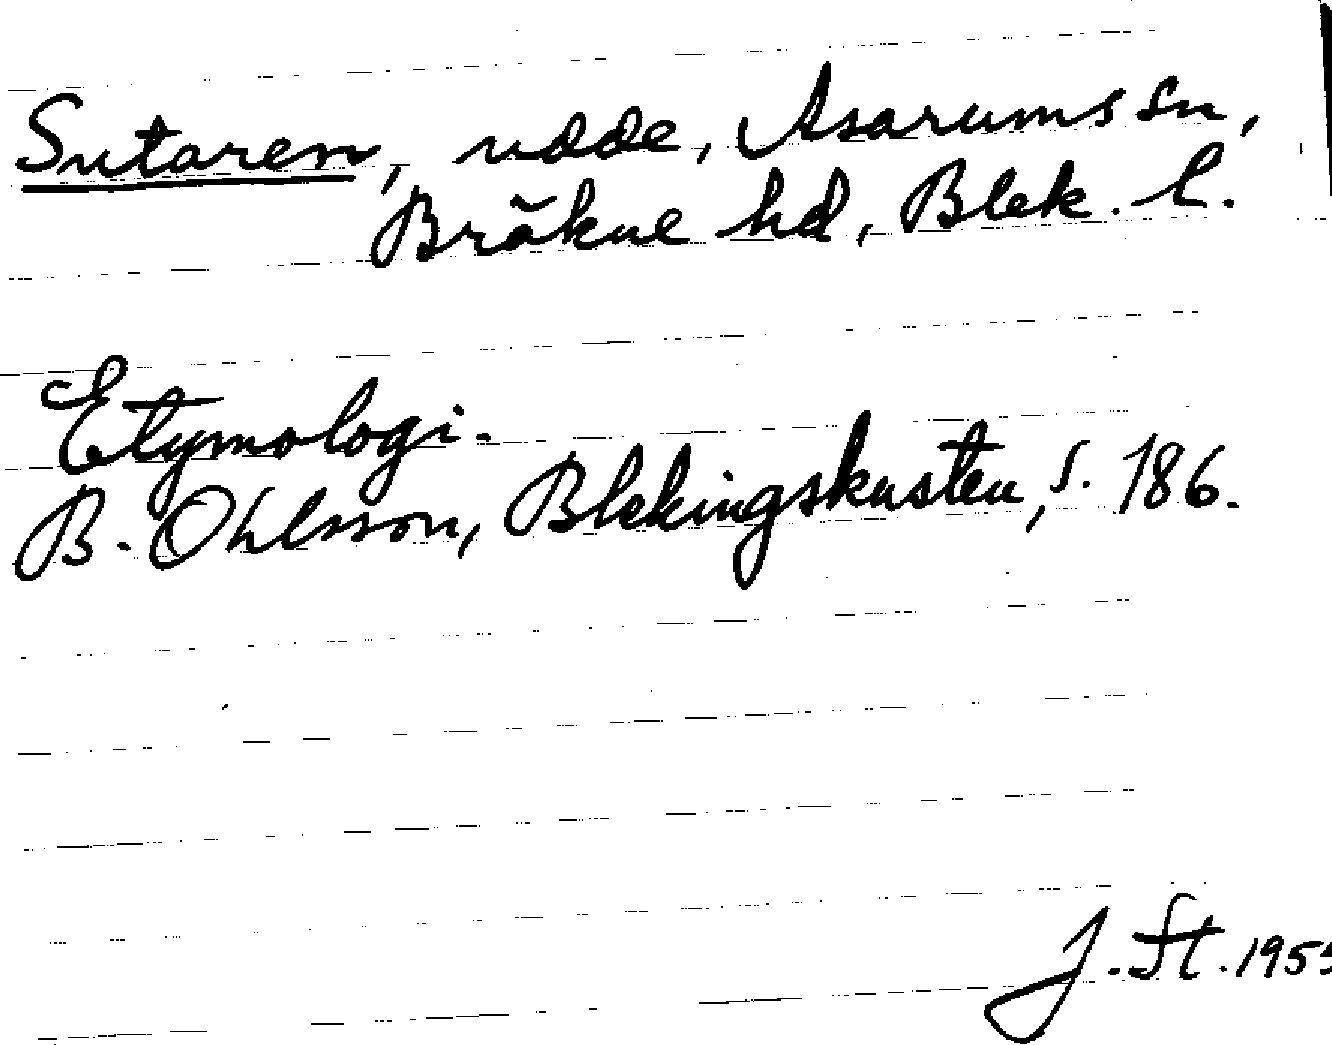 Sutaren, udde, Asarums sn,
Bräkne hd, Blek. l.
Etymologi.
B. Ohlsson, Blekingskusten, s. 186.
J. St. 1955